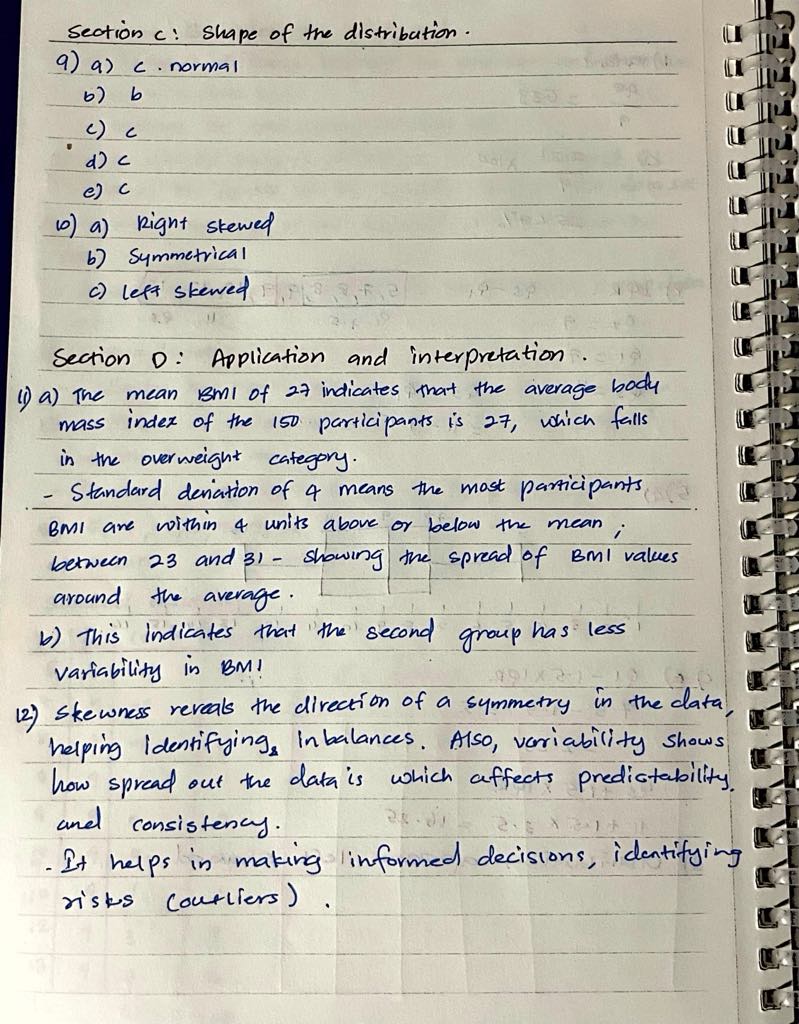 Section C: Shape of the distribution.
9) a) c. normal
b) b
c) c
d) c
e) c
10) a) Right skewed
b) Symmetrical
c) left skewed
Section D: Application and interpretation.
11) a) The mean BMI of 27 indicates that the average body
mass index of the 150 participants is 27, which falls
in the overweight category.
- Standard deviation of 4 means the most participants
BMI are within 4 units above or below the mean;
between 23 and 31 - showing the spread of BMI values
around the average.
b) This indicates that the second group has less
variability in BMI
12) Skewness reveals the direction of a symmetry in the data,
helping identifying inbalances. Also, variability shows
how spread out the data is which affects predictability.
and consistency.
- It helps in making informed decisions, identifying
risks (outliers).